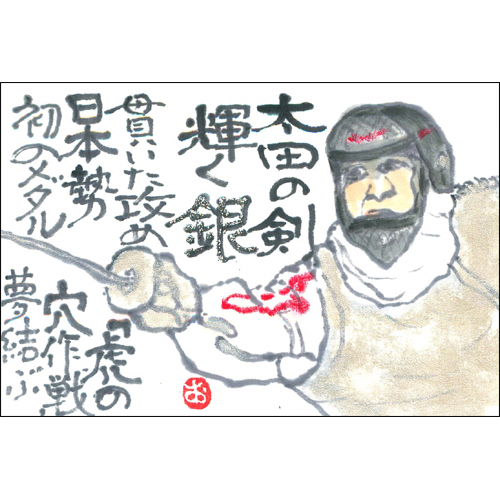 太田の剣
輝く銀
貫いた攻め
日本勢
初のメダル
「虎の
穴作戦
夢結ぶ
お